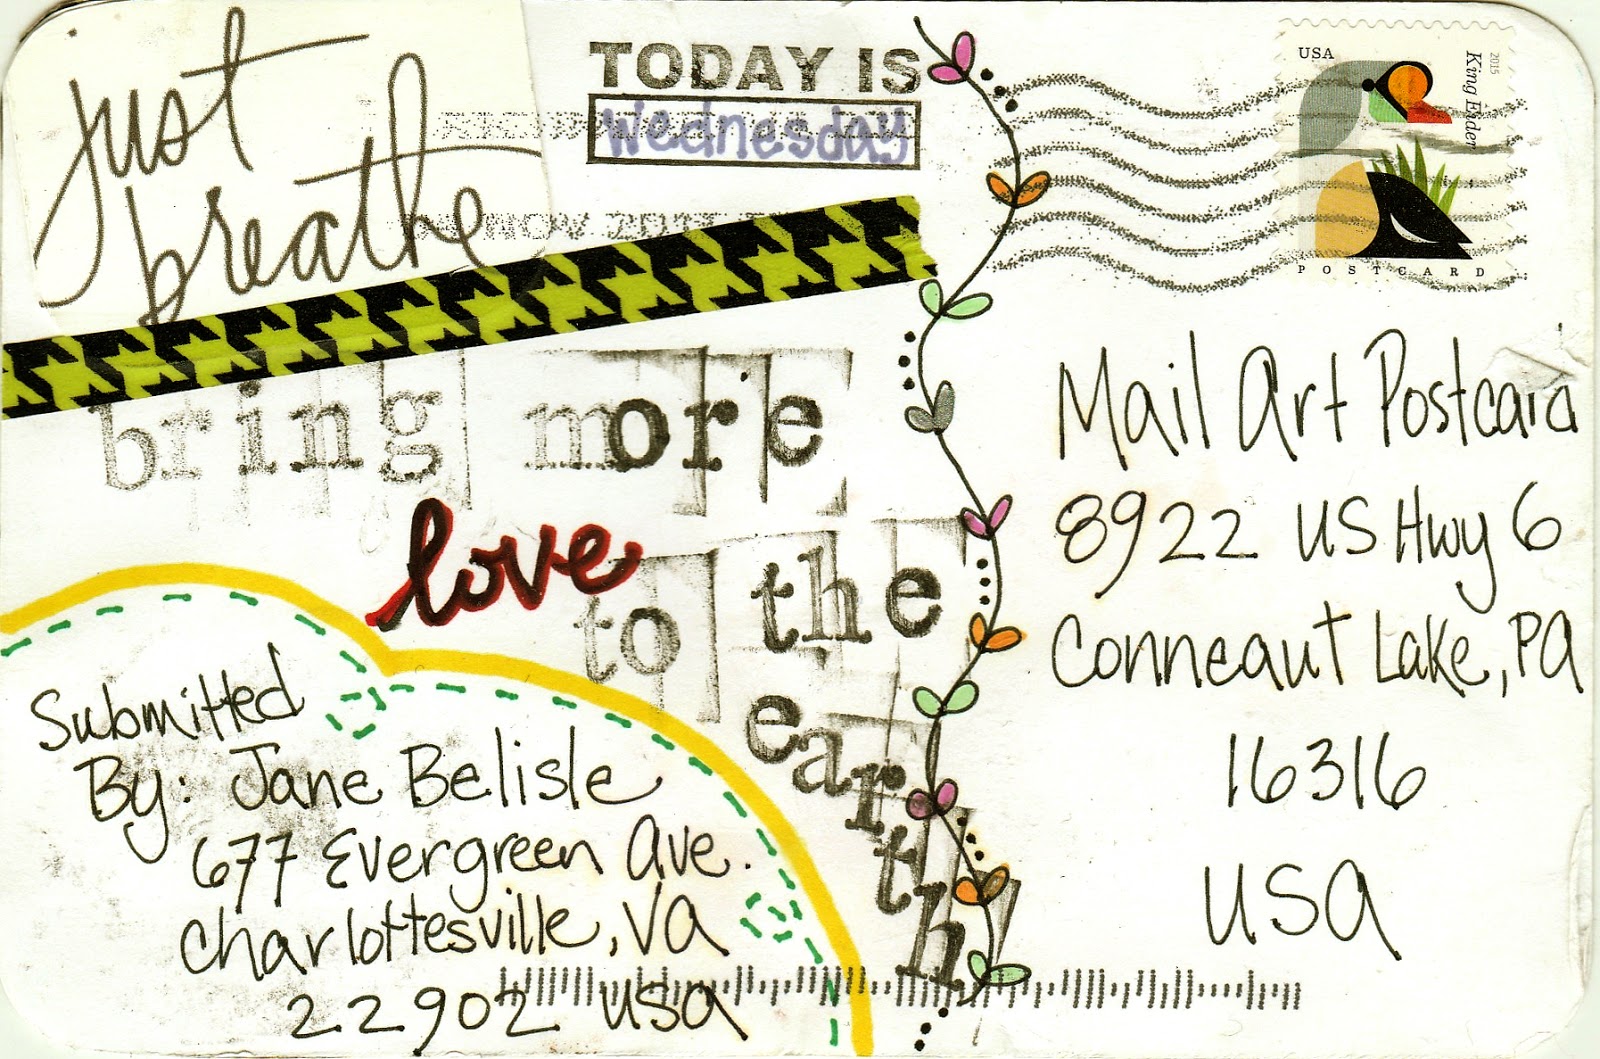 just
breathe
TODAY IS
Wednesday
NOV
USA
2015
King Eider
POSTCARD
bring more
love
to the
earth
Submitted
By: Jane Belisle
677 Evergreen Ave.
Charlottesville, VA
22902 USA
Mail Art Postcard
8922 US Hwy 6
Conneaut Lake, PA
16316
USA